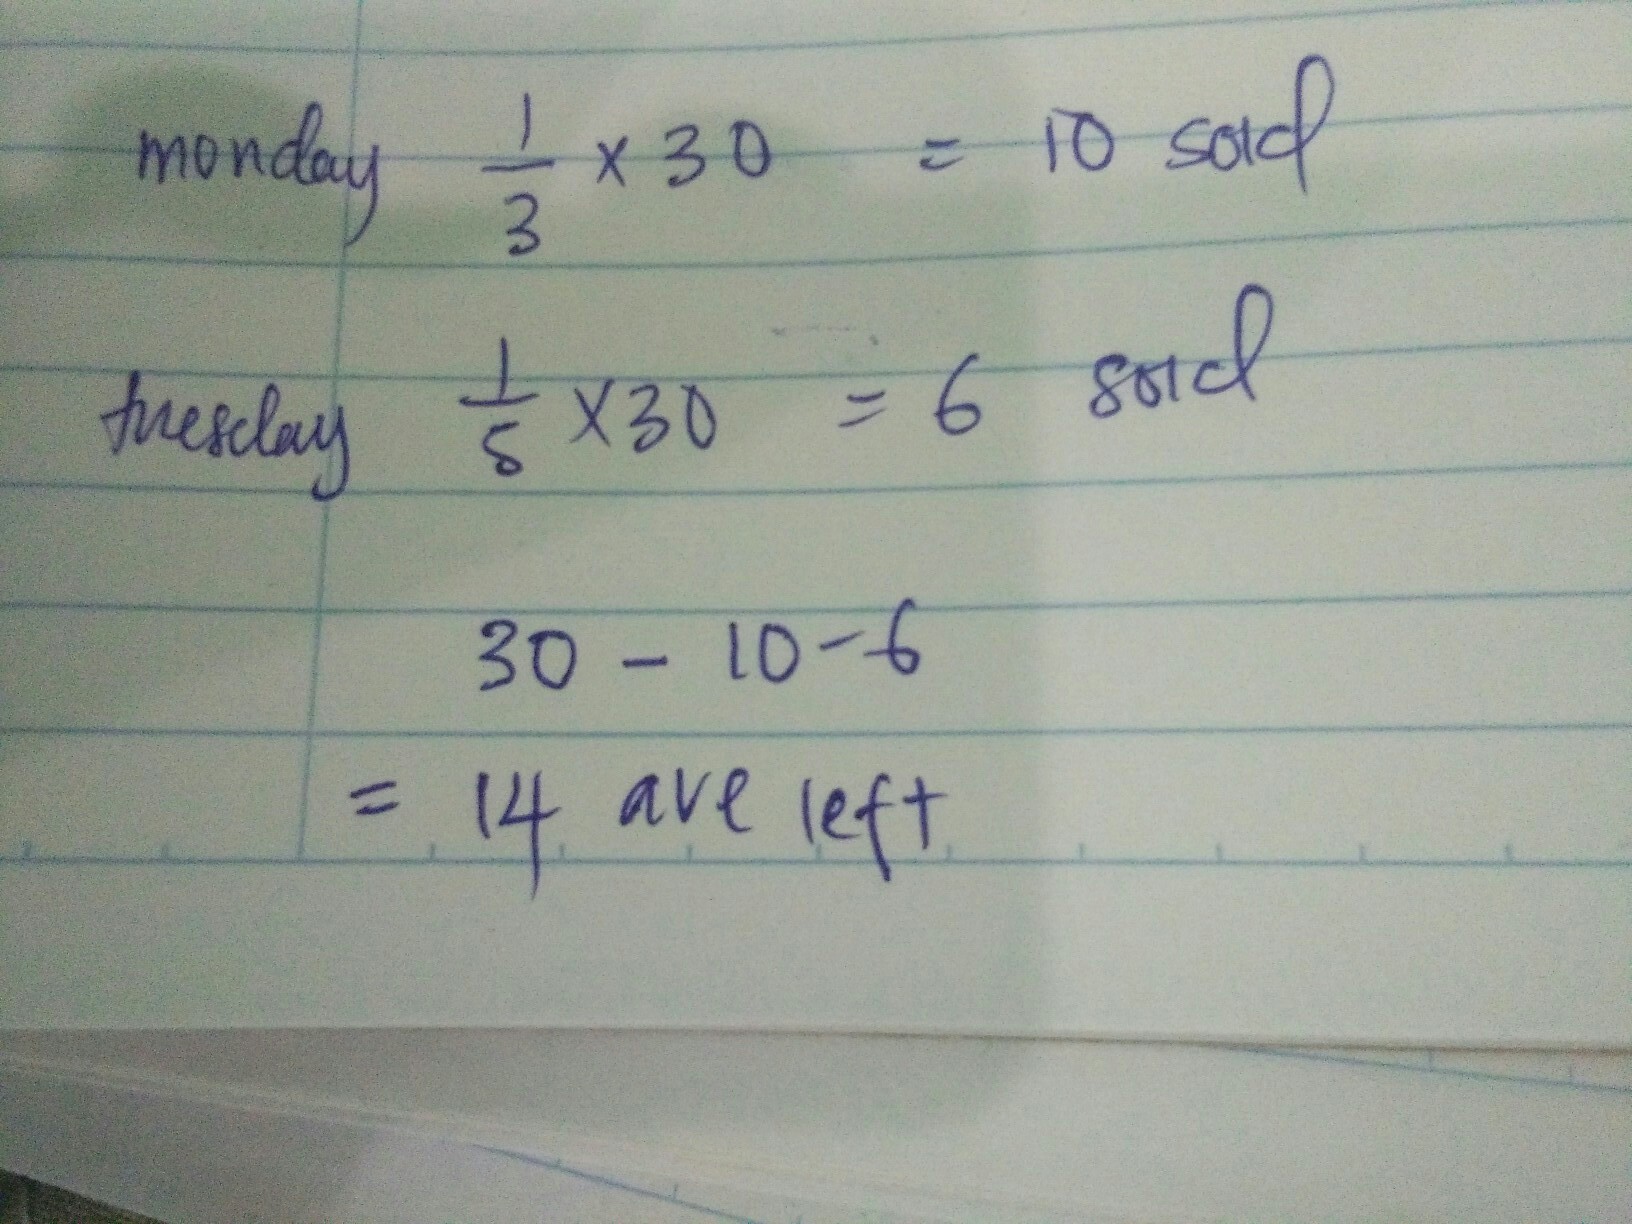 monday 1/3 x 30 = 10 sold
tuesday 1/5 x 30 = 6 sold
30 - 10 - 6
= 14 are left